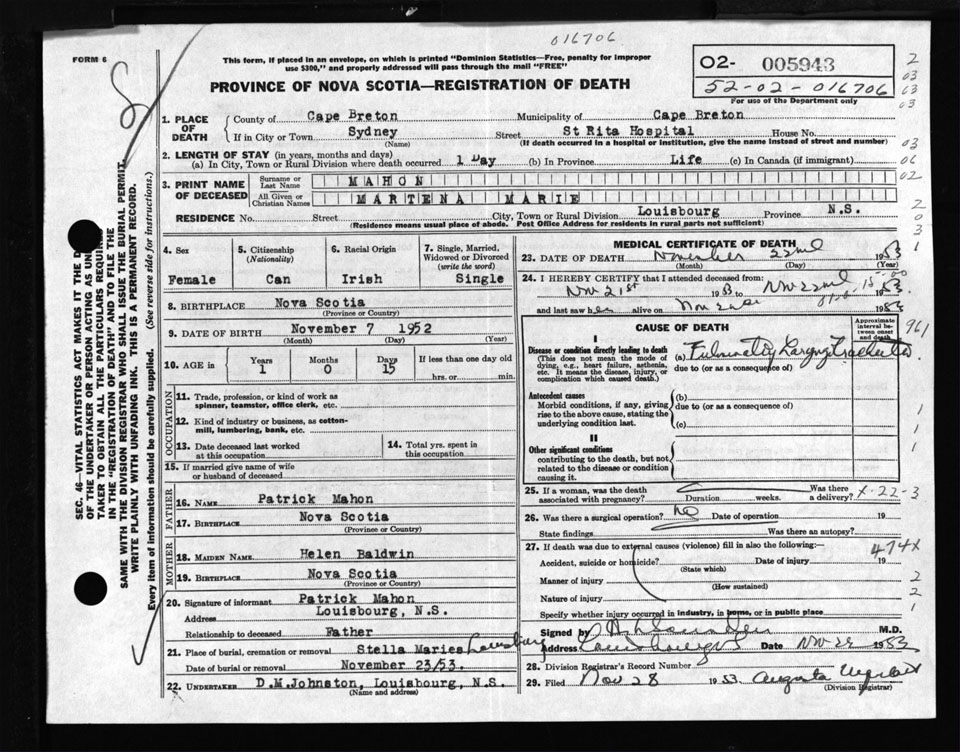 016706
FORM 6
This form, if placed in an envelope, on which is printed "Dominion Statistics—Free, penalty for improper
use $300," and properly addressed will pass through the mail "FREE"
O2- 005943
52-02-016706
For use of the Department only
PROVINCE OF NOVA SCOTIA—REGISTRATION OF DEATH
1. PLACE OF DEATH
County of Cape Breton Municipality of Cape Breton
If in City or Town Sydney Street St Rita Hospital House No.
(Name) (If death occurred in a hospital or institution, give the name instead of street and number)
2. LENGTH OF STAY (in years, months and days)
(a) In City, Town or Rural Division where death occurred 1 Day (b) In Province Life (c) In Canada (if immigrant)
3. PRINT NAME OF DECEASED
Surname or Last Name MAHON
All Given or Christian Names MARTENA MARIE
RESIDENCE No. Street City, Town or Rural Division Louisbourg Province N.S.
(Residence means usual place of abode. Post Office Address for residents in rural parts not sufficient)
4. Sex
Female
5. Citizenship
(Nationality)
Can
6. Racial Origin
Irish
7. Single, Married,
Widowed or Divorced
(write the word)
Single
8. BIRTHPLACE Nova Scotia
(Province or Country)
9. DATE OF BIRTH November 7 1952
(Month) (Day) (Year)
10. AGE in
Years 1
Months 0
Days 15
If less than one day old
hrs. or min.
OCCUPATION
11. Trade, profession, or kind of work as
spinner, teamster, office clerk, etc.
12. Kind of industry or business, as cotton-
mill, lumbering, bank, etc.
13. Date deceased last worked
at this occupation
14. Total yrs. spent in
this occupation
15. If married give name of wife
or husband of deceased
FATHER
16. NAME Patrick Mahon
17. BIRTHPLACE Nova Scotia
(Province or Country)
MOTHER
18. MAIDEN NAME Helen Baldwin
19. BIRTHPLACE Nova Scotia
(Province or Country)
20. Signature of informant Patrick Mahon
Address Louisbourg, N.S.
Relationship to deceased Father
21. Place of burial, cremation or removal Stella Maries Louisburg
Date of burial or removal November 23/53.
22. UNDERTAKER D.M.Johnston, Louisbourg, N.S.
(Name and address)
MEDICAL CERTIFICATE OF DEATH
23. DATE OF DEATH November 22nd 1953
(Month) (Day) (Year)
24. I HEREBY CERTIFY that I attended deceased from:
Nov 21st 1953 to Nov 22nd 1953
and last saw her alive on Nov 1953
CAUSE OF DEATH
Approximate
interval be-
tween onset
and death
I
Disease or condition directly leading to death
(This does not mean the mode of
dying, e.g., heart failure, asthenia,
etc. It means the disease, injury, or
complication which caused death.)
(a)
due to (or as a consequence of)
Antecedent causes
Morbid conditions, if any, giving
rise to the above cause, stating the
underlying condition last.
(b)
due to (or as a consequence of)
(c)
II
Other significant conditions
contributing to the death, but not
related to the disease or condition
causing it.
961
25. If a woman, was the death
associated with pregnancy? Duration weeks. Was there a delivery?
X-22-3
26. Was there a surgical operation? no Date of operation 19
State findings Was there an autopsy?
27. If death was due to external causes (violence) fill in also the following:—
474X
Accident, suicide or homicide? Date of injury 19
(State which)
Manner of injury
(How sustained)
Nature of injury
Specify whether injury occurred in industry, in home, or in public place
Signed by M.D.
Address Louisbourg NS Date Nov 1953
28. Division Registrar's Record Number
29. Filed Nov 28 1953 Augusta
(Division Registrar)
SEC. 46—VITAL STATISTICS ACT MAKES IT THE
OF THE UNDERTAKER OR PERSON ACTING AS
TAKER TO OBTAIN ALL THE PARTICULARS
IN THE "REGISTRATION OF DEATH" AND TO FILE THE
SAME WITH THE DIVISION REGISTRAR WHO SHALL ISSUE THE BURIAL PERMIT.
WRITE PLAINLY WITH UNFADING INK. THIS IS A PERMANENT RECORD.
Every item of information should be carefully supplied. (See reverse side for instructions.)